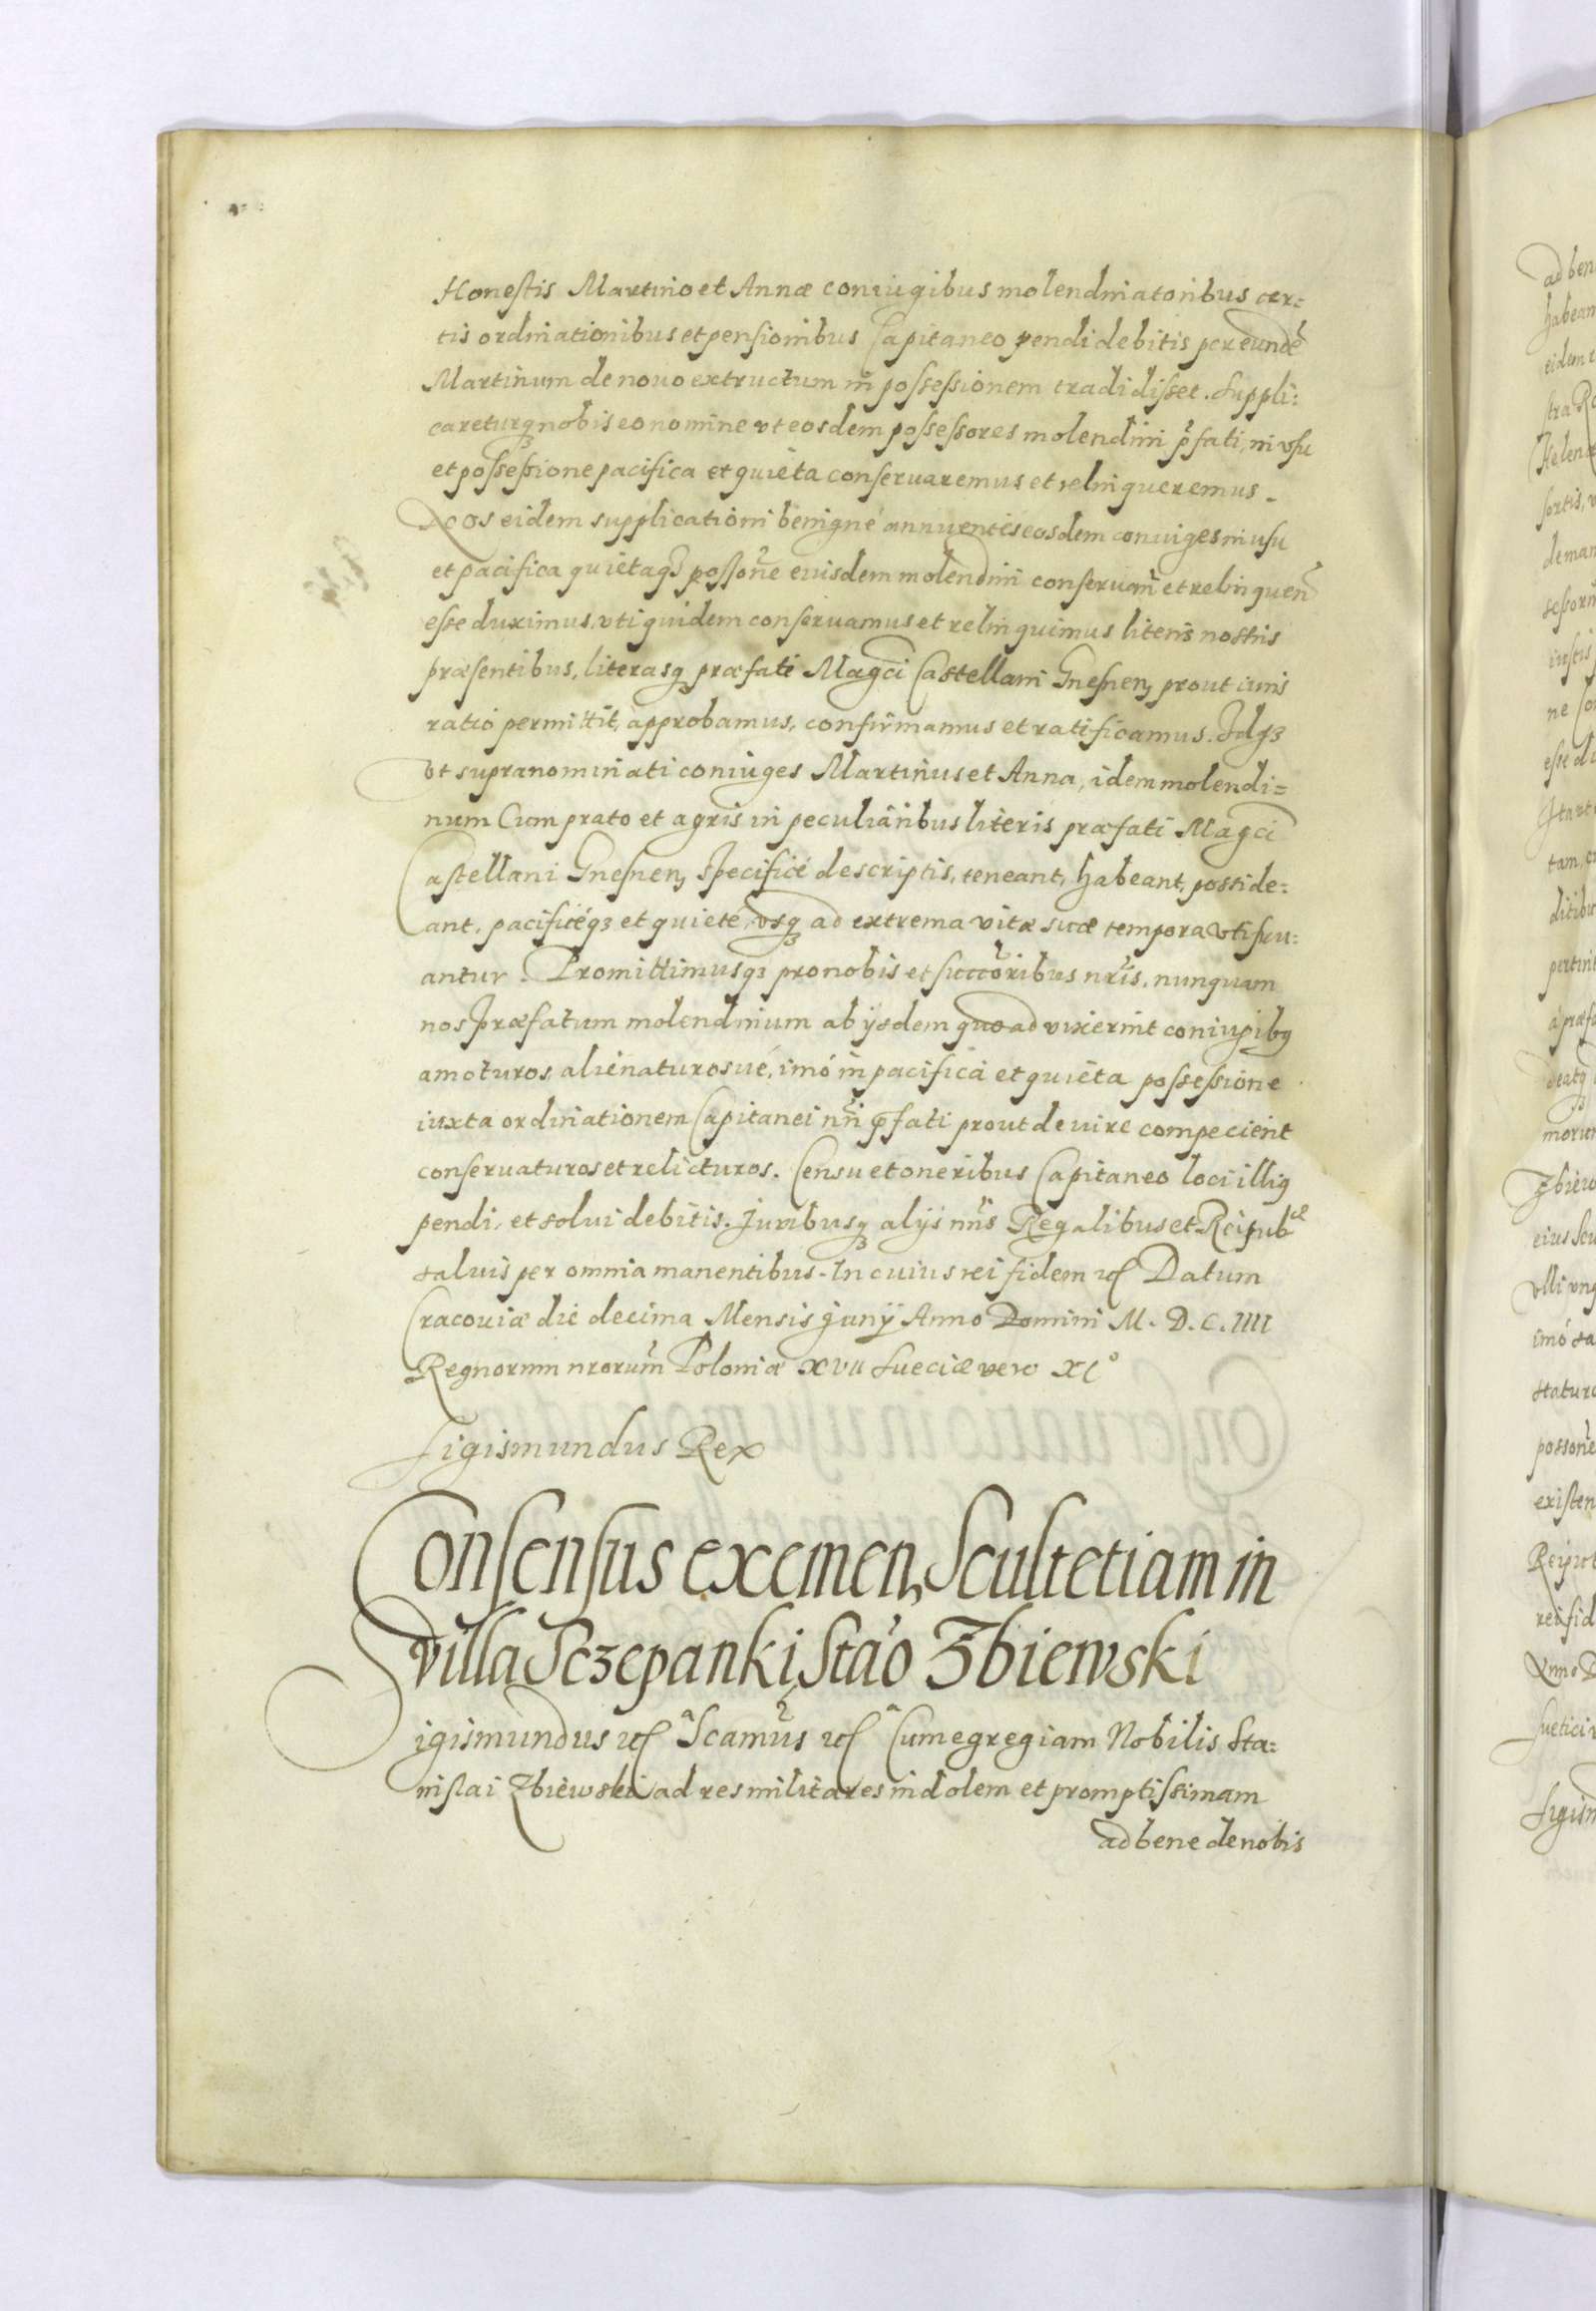 Honestis Martino et Annæ coniugibus molendinatoribus cer=
tis ordinationibus et pensionibus Capitaneo pendi debitis per eundẽ
Martinum de nouo extructum in possessionem tradidisset. Suppli:
careturqꝫ nobis eo nomine vt eosdem possessores molendini p̃fati, in vsu
et possessione pacifica et quieta conseruaremus et relinqueremus.
Nos eidem supplicationi benigné annuentes eosdem coniuges in usu
et pacifica quietaqꝫ possoñe eiusdem molendini conseruan̄ et relinquen̄
esse duximus, vti quidem conseruamus et relinquimus literis nostris
præsentibus, literasqꝫ præfati Magci Castellani Gnesnen, prout iuris
ratio permittit, approbamus, confirmamus et ratificamus. Idqꝫ
vt supranominati coniuges Martinus et Anna, idem molendi=
num Cum prato et agris in peculiaribus literis præfati Magci
Castellani Gnesnen, specificé descriptis, teneant, habeant, posside:
ant, pacificéqꝫ et quieté, vsqꝫ ad extrema vitæ suæ tempora vtifru:
antur. Promittimusqꝫ pro nobis et succõribus nr̃is, nunquam
nos præfatum molendinum ab ijsdem quoad vixerint coniugibꝰ
amoturos, alienaturosué, imó in pacifica et quieta possessione
iuxta ordinationem Capitanei nr̃i p̃fati prout de iure compecient
conseruaturos et relicturos. Censu et oneribus Capitaneo loci illiꝰ
pendi, et solui debitis. Iuribusqꝫ alijs nr̃is Regalibus et Reipubcæ
saluis per omnia manentibus. In cuius rei fidem etc Datum
Cracouiæ die decima Mensis Junij Anno Domini M. D. C. IIII
Regnorum nrorum̃ Poloniæ XVII Sueciæ vero XI°
Sigismundus Rex
Consensus exemen, Scultetiam in
villa Sczepanki, Stão Zbiewski
Sigismundus etc Scamũs etc Cum egregiam Nobilis Sta:
nislai Zbiewski ad res militares indolem et promptissimam
ad bene de nobis